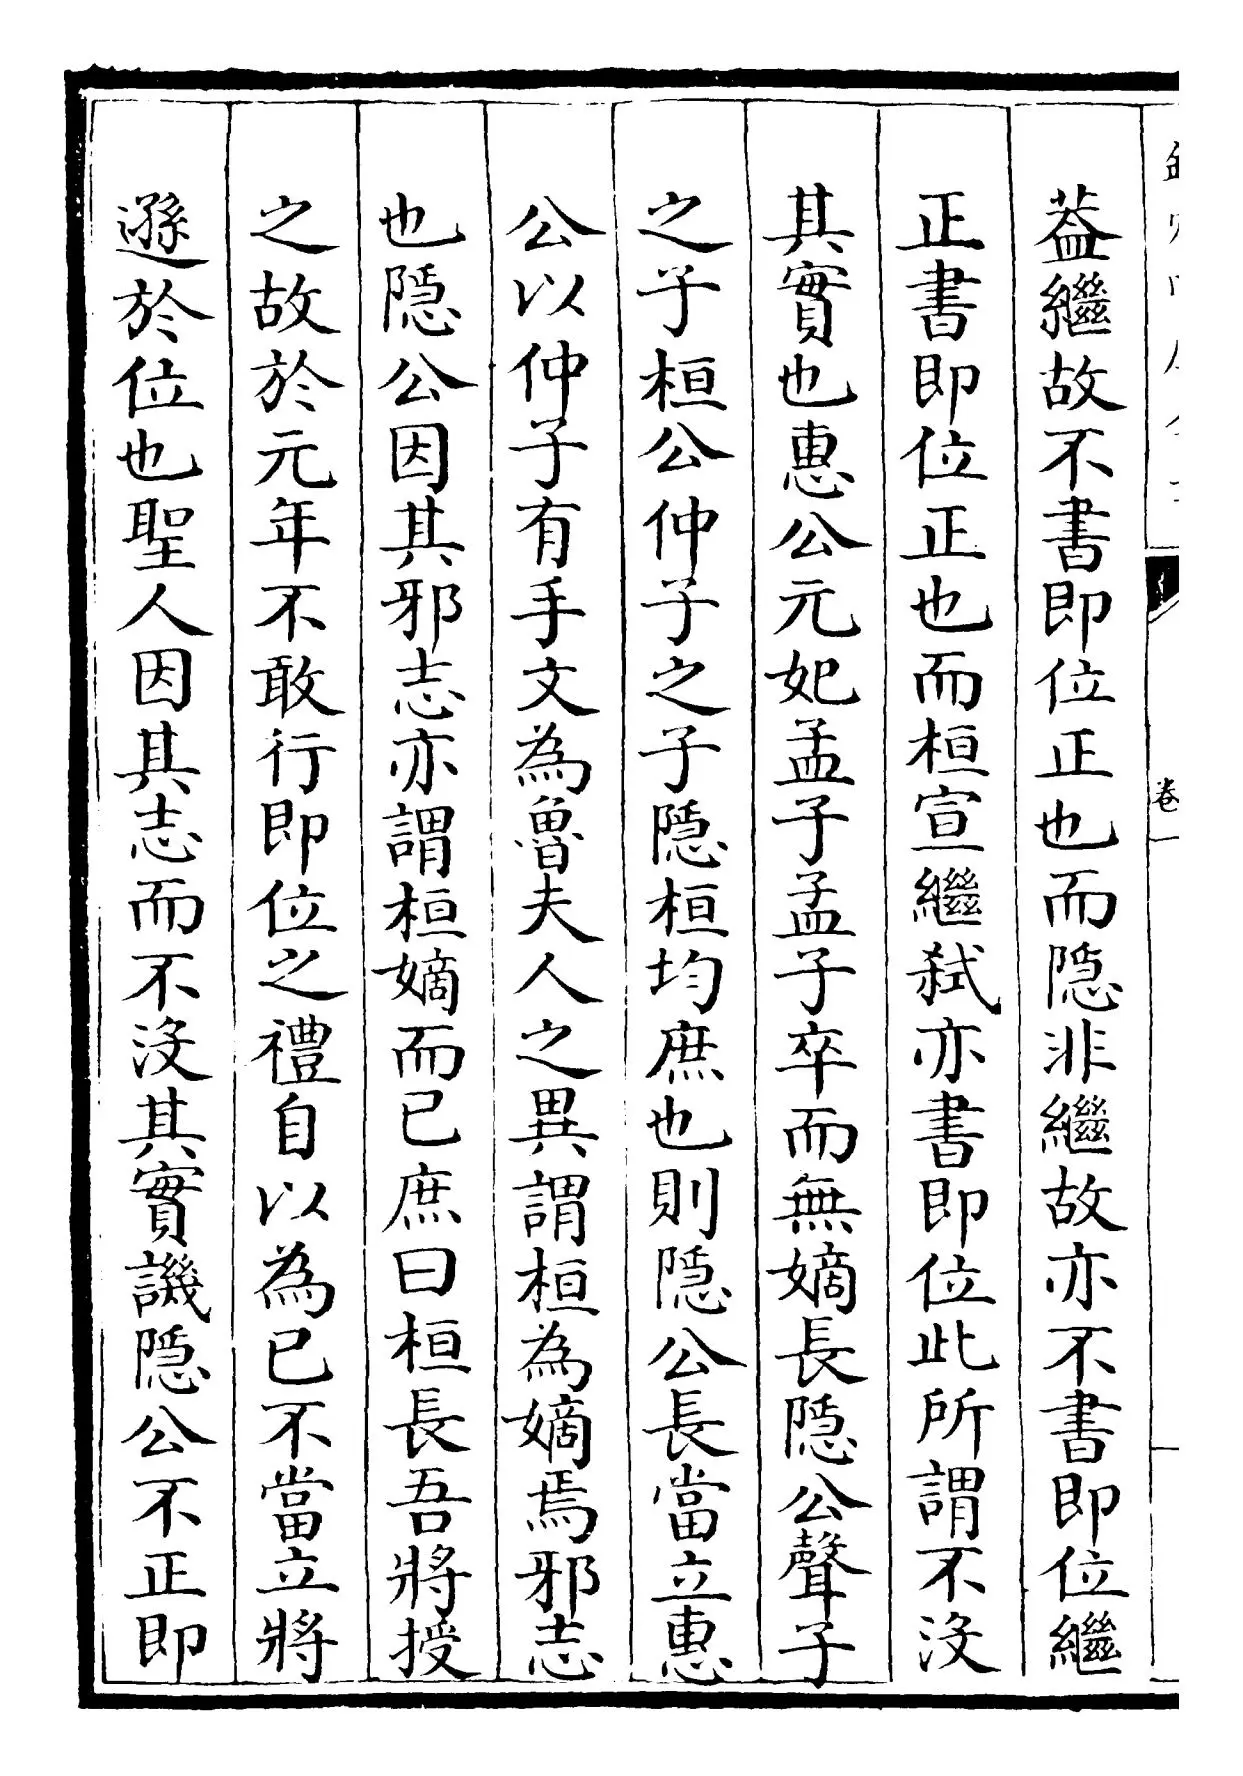 卷一
葢繼故不書即位正也而隠非繼故亦不書即位繼
正書即位正也而桓宣繼弑亦書即位此所謂不沒
其實也惠公元妃孟子孟子卒而無嫡長隠公聲子
之子桓公仲子之子隠桓均庶也則隠公長當立惠
公以仲子有手文為魯夫人之異謂桓為嫡焉邪志
也隠公因其邪志亦謂桓嫡而已庶曰桓長吾將授
之故於元年不敢行即位之禮自以為已不當立將
遜於位也聖人因其志而不沒其實譏隠公不正即